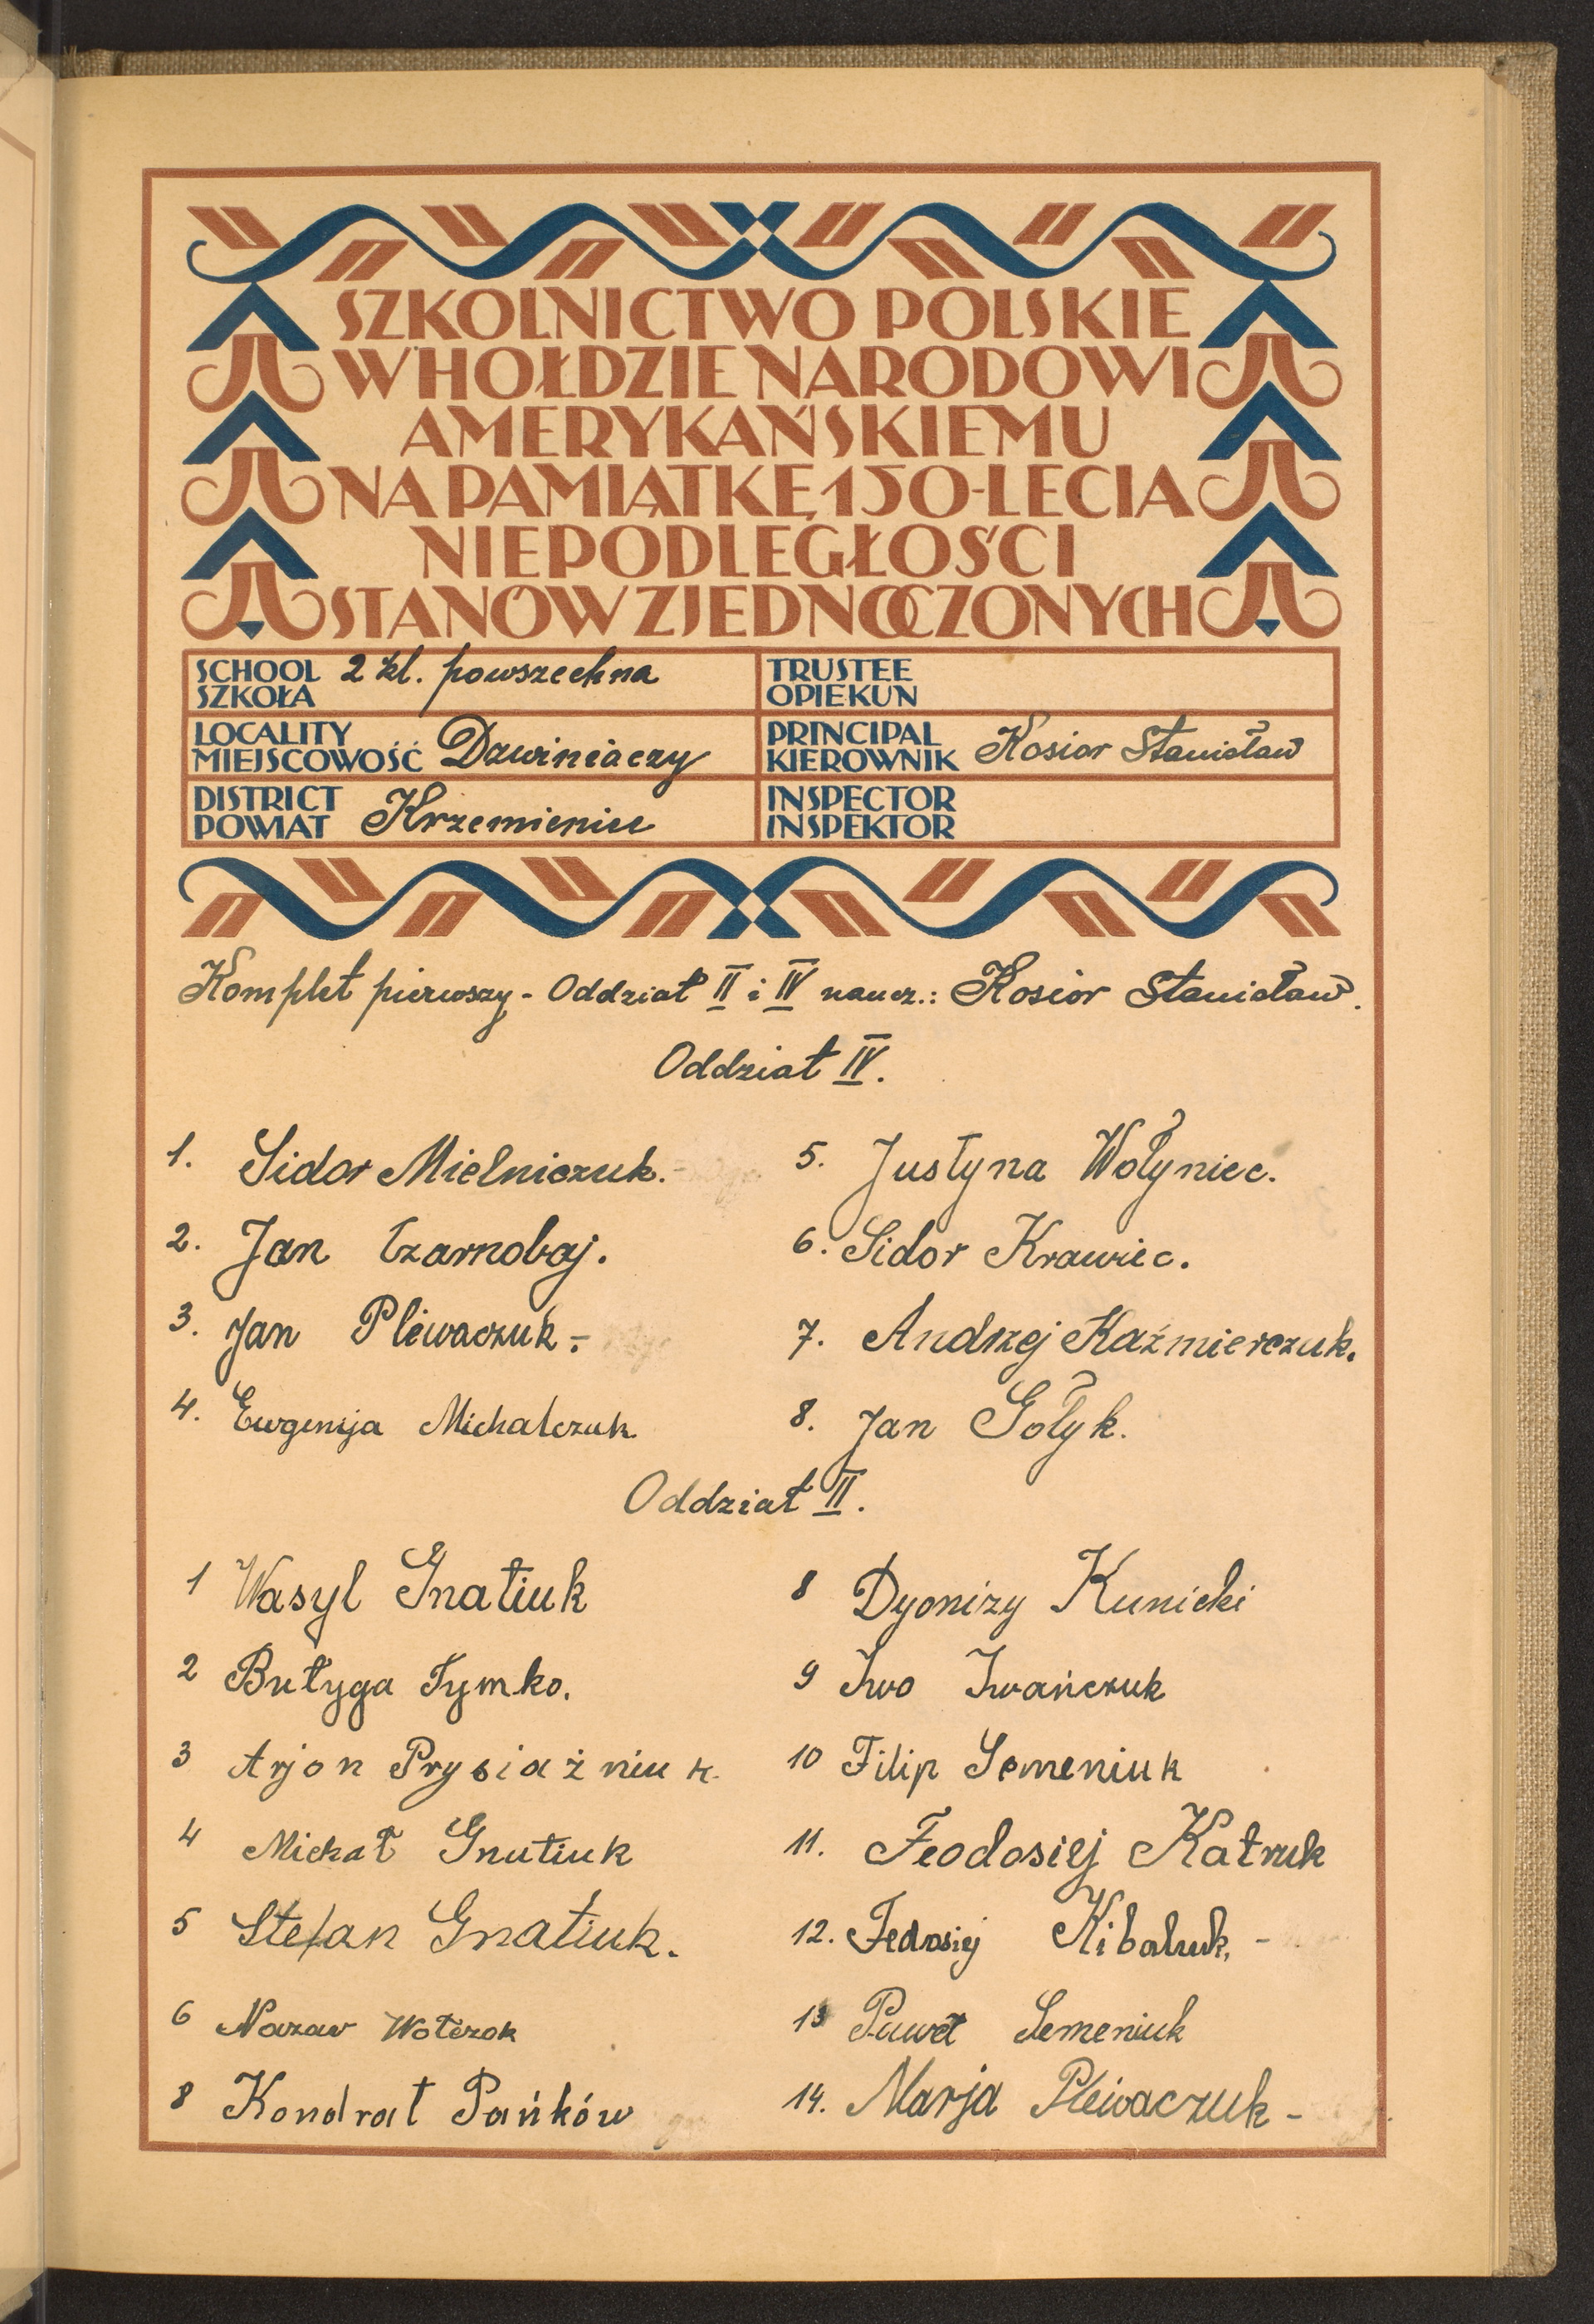 SZKOLNICTWO POLSKIE
W HOŁDZIE NARODOWI
AMERYKAŃSKIEMU
NA PAMIĄTKĘ 150-LECIA
NIEPODLEGŁOŚCI
STANÓW ZJEDNOCZONYCH
SCHOOL
SZKOŁA
2 kl. powszechna
TRUSTEE
OPIEKUN
LOCALITY
MIEJSCOWOŚĆ
Dzwiniaczy
PRINCIPAL
KIEROWNIK
Kosior Stanisław
DISTRICT
POWIAT
Krzemieniu
INSPECTOR
INSPEKTOR
Komplet pierwszy - Oddział II i IV naucz.: Kosior Stanisław.
Oddział IV.
1. Sidor Mielniczuk.-
2. Jan Czarnobaj.
3. Jan Plewaczuk.-
4. Ewgenija Michalczuk
5. Justyna Wołyniec.
6. Sidor Krawiec.
7. Andrzej Kaźmierczuk.
8. Jan Gołyk.
Oddział II.
1 Wasyl Gnatiuk
2 Butyga Tymko.
3 Arjon Prysiażniuk.
4 Michał Gnatiuk
5 Stefan Gnatiuk.
6 Nazar
8 Kondrat Pańków
8 Dyonizy Kunicki
9 Iwo Iwańczuk
10 Filip Semeniuk
11. Feodosiej Katruk
12. Fedosiej Kibaluk,-
13 Paweł Semeniuk
14. Marja Plewaczuk-